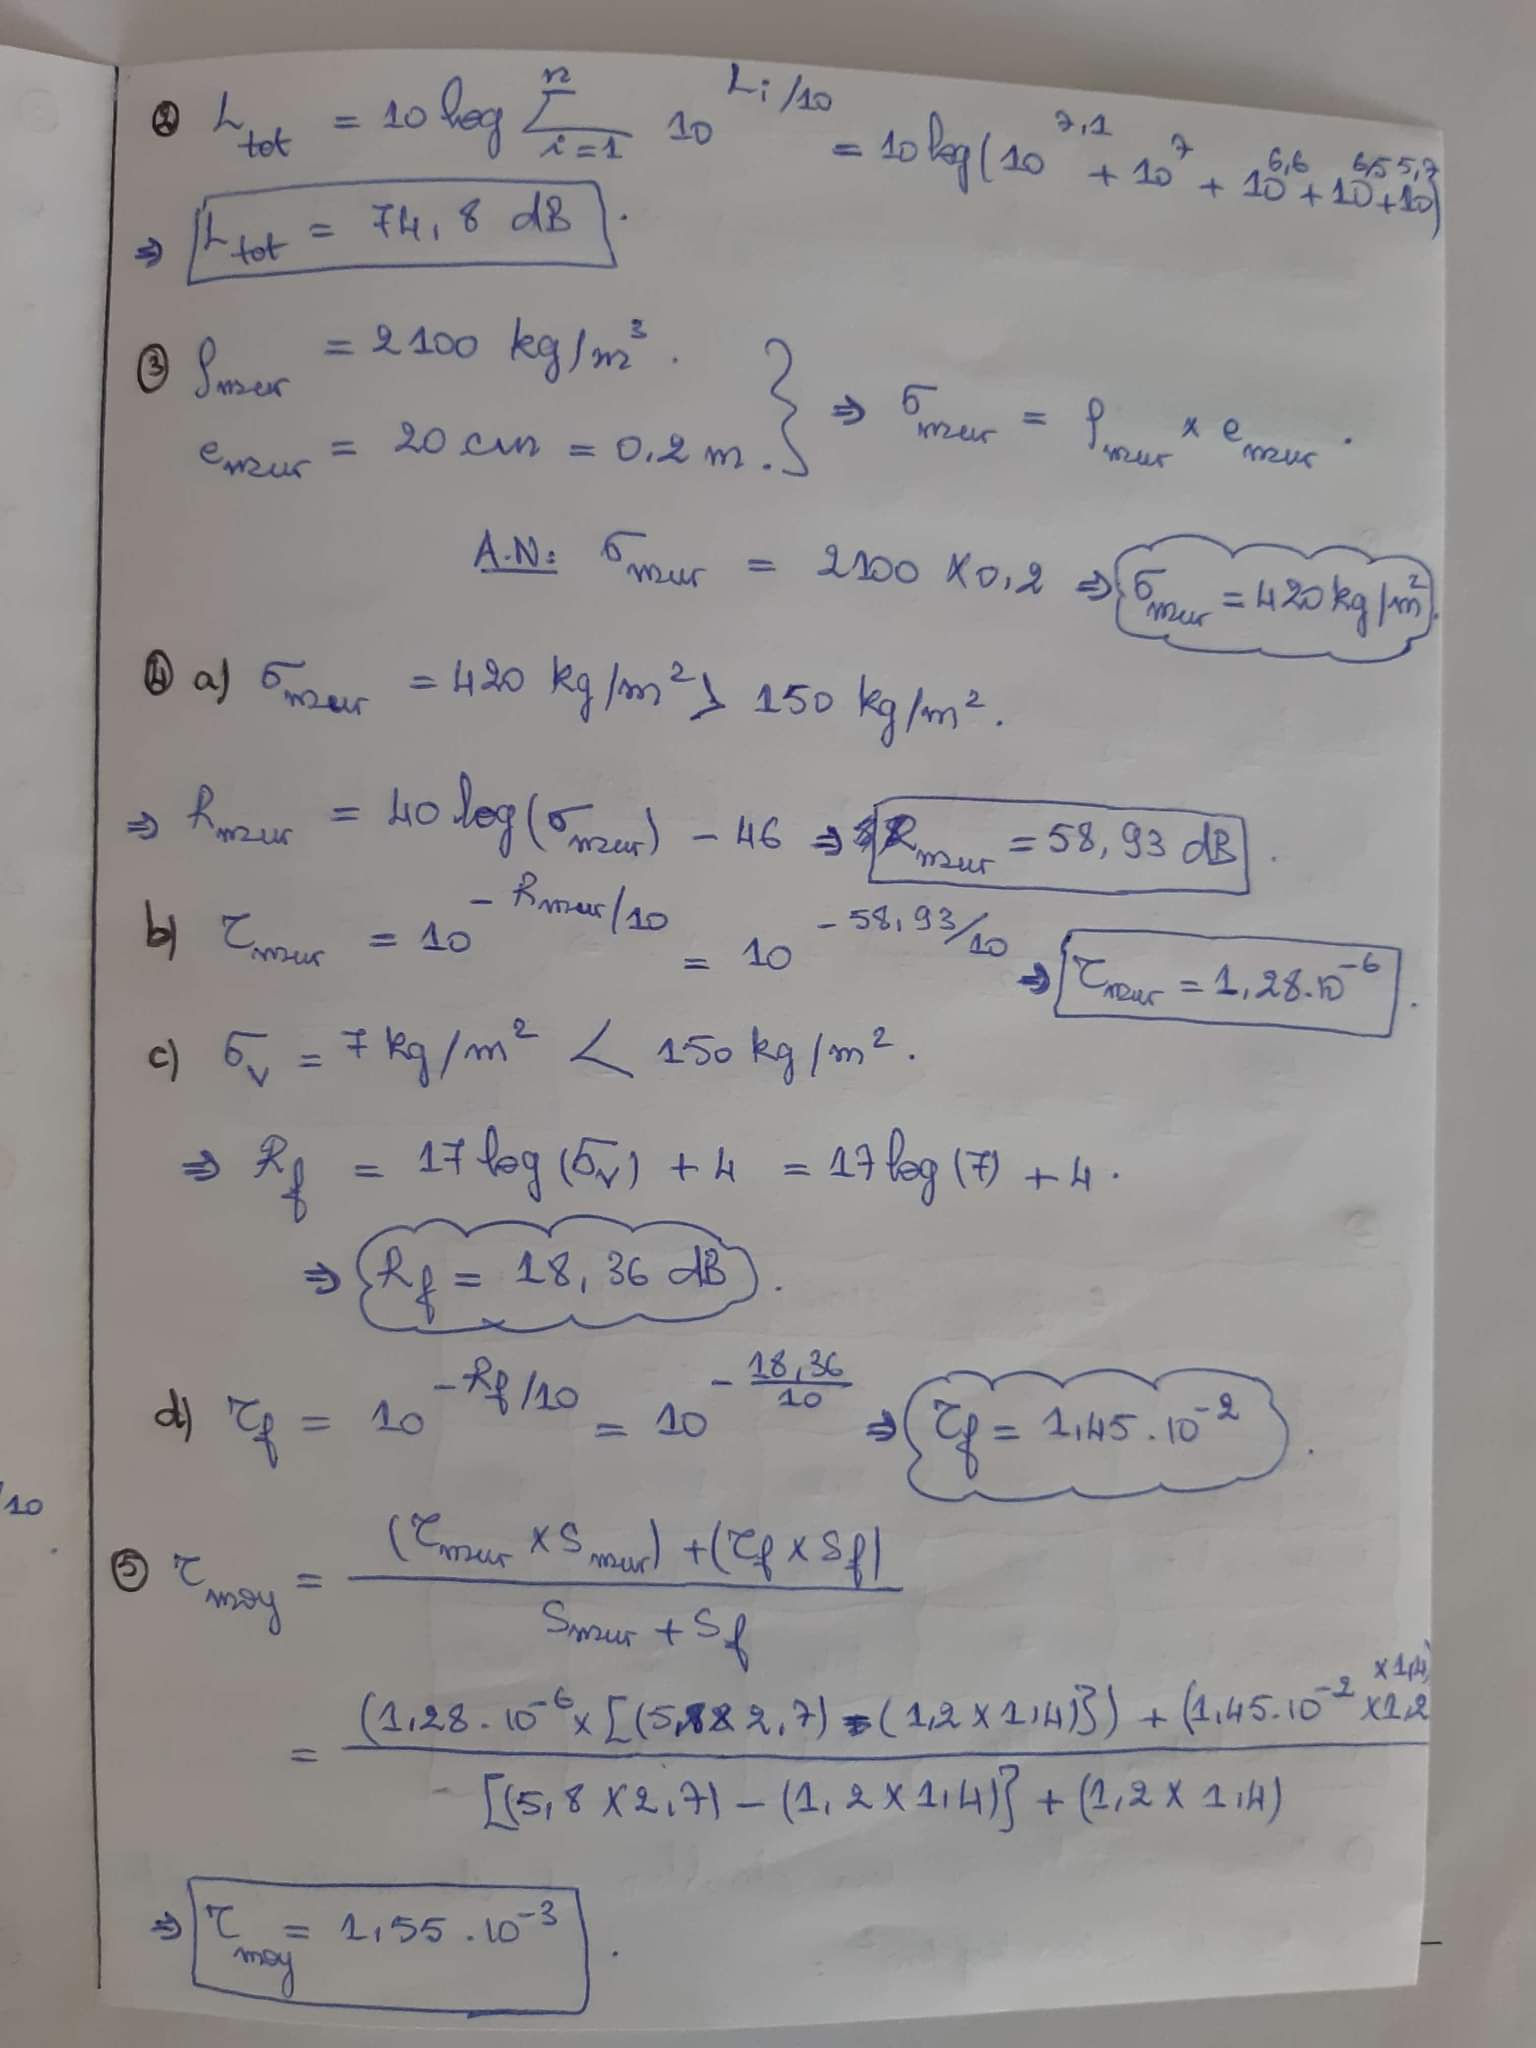 ② L_tot = 10 log Σ_{i=1}^{n} 10^{Li/10} = 10 log(10^{7,1} + 10^7 + 10^{6,6} + 10^{6,5} + 10^{5,7})
⇒ L_tot = 74,8 dB.
③ ρ_mur = 2100 kg/m³.
e_mur = 20 cm = 0,2 m. } ⇒ σ_mur = ρ_mur × e_mur.
A.N: σ_mur = 2100 × 0,2 ⇒ σ_mur = 420 kg/m².
④ a) σ_mur = 420 kg/m² > 150 kg/m².
⇒ R_mur = 40 log(σ_mur) - 46 ⇒ R_mur = 58,93 dB.
b) τ_mur = 10^{-R_mur/10} = 10^{-58,93/10} ⇒ τ_mur = 1,28.10^{-6}.
c) σ_v = 7 kg/m² < 150 kg/m².
⇒ R_f = 17 log(σ_v) + 4 = 17 log(7) + 4.
⇒ R_f = 18,36 dB.
d) τ_f = 10^{-R_f/10} = 10^{-18,36/10} ⇒ τ_f = 1,45.10^{-2}.
/10
⑤ τ_moy = (τ_mur × S_mur) + (τ_f × S_f)
S_mur + S_f
= (1,28.10^{-6} × [(5,8 × 2,7) - (1,2 × 1,4)]) + (1,45.10^{-2} × 1,2 × 1,4)
[(5,8 × 2,7) - (1,2 × 1,4)] + (1,2 × 1,4)
⇒ τ_moy = 1,55.10^{-3}.